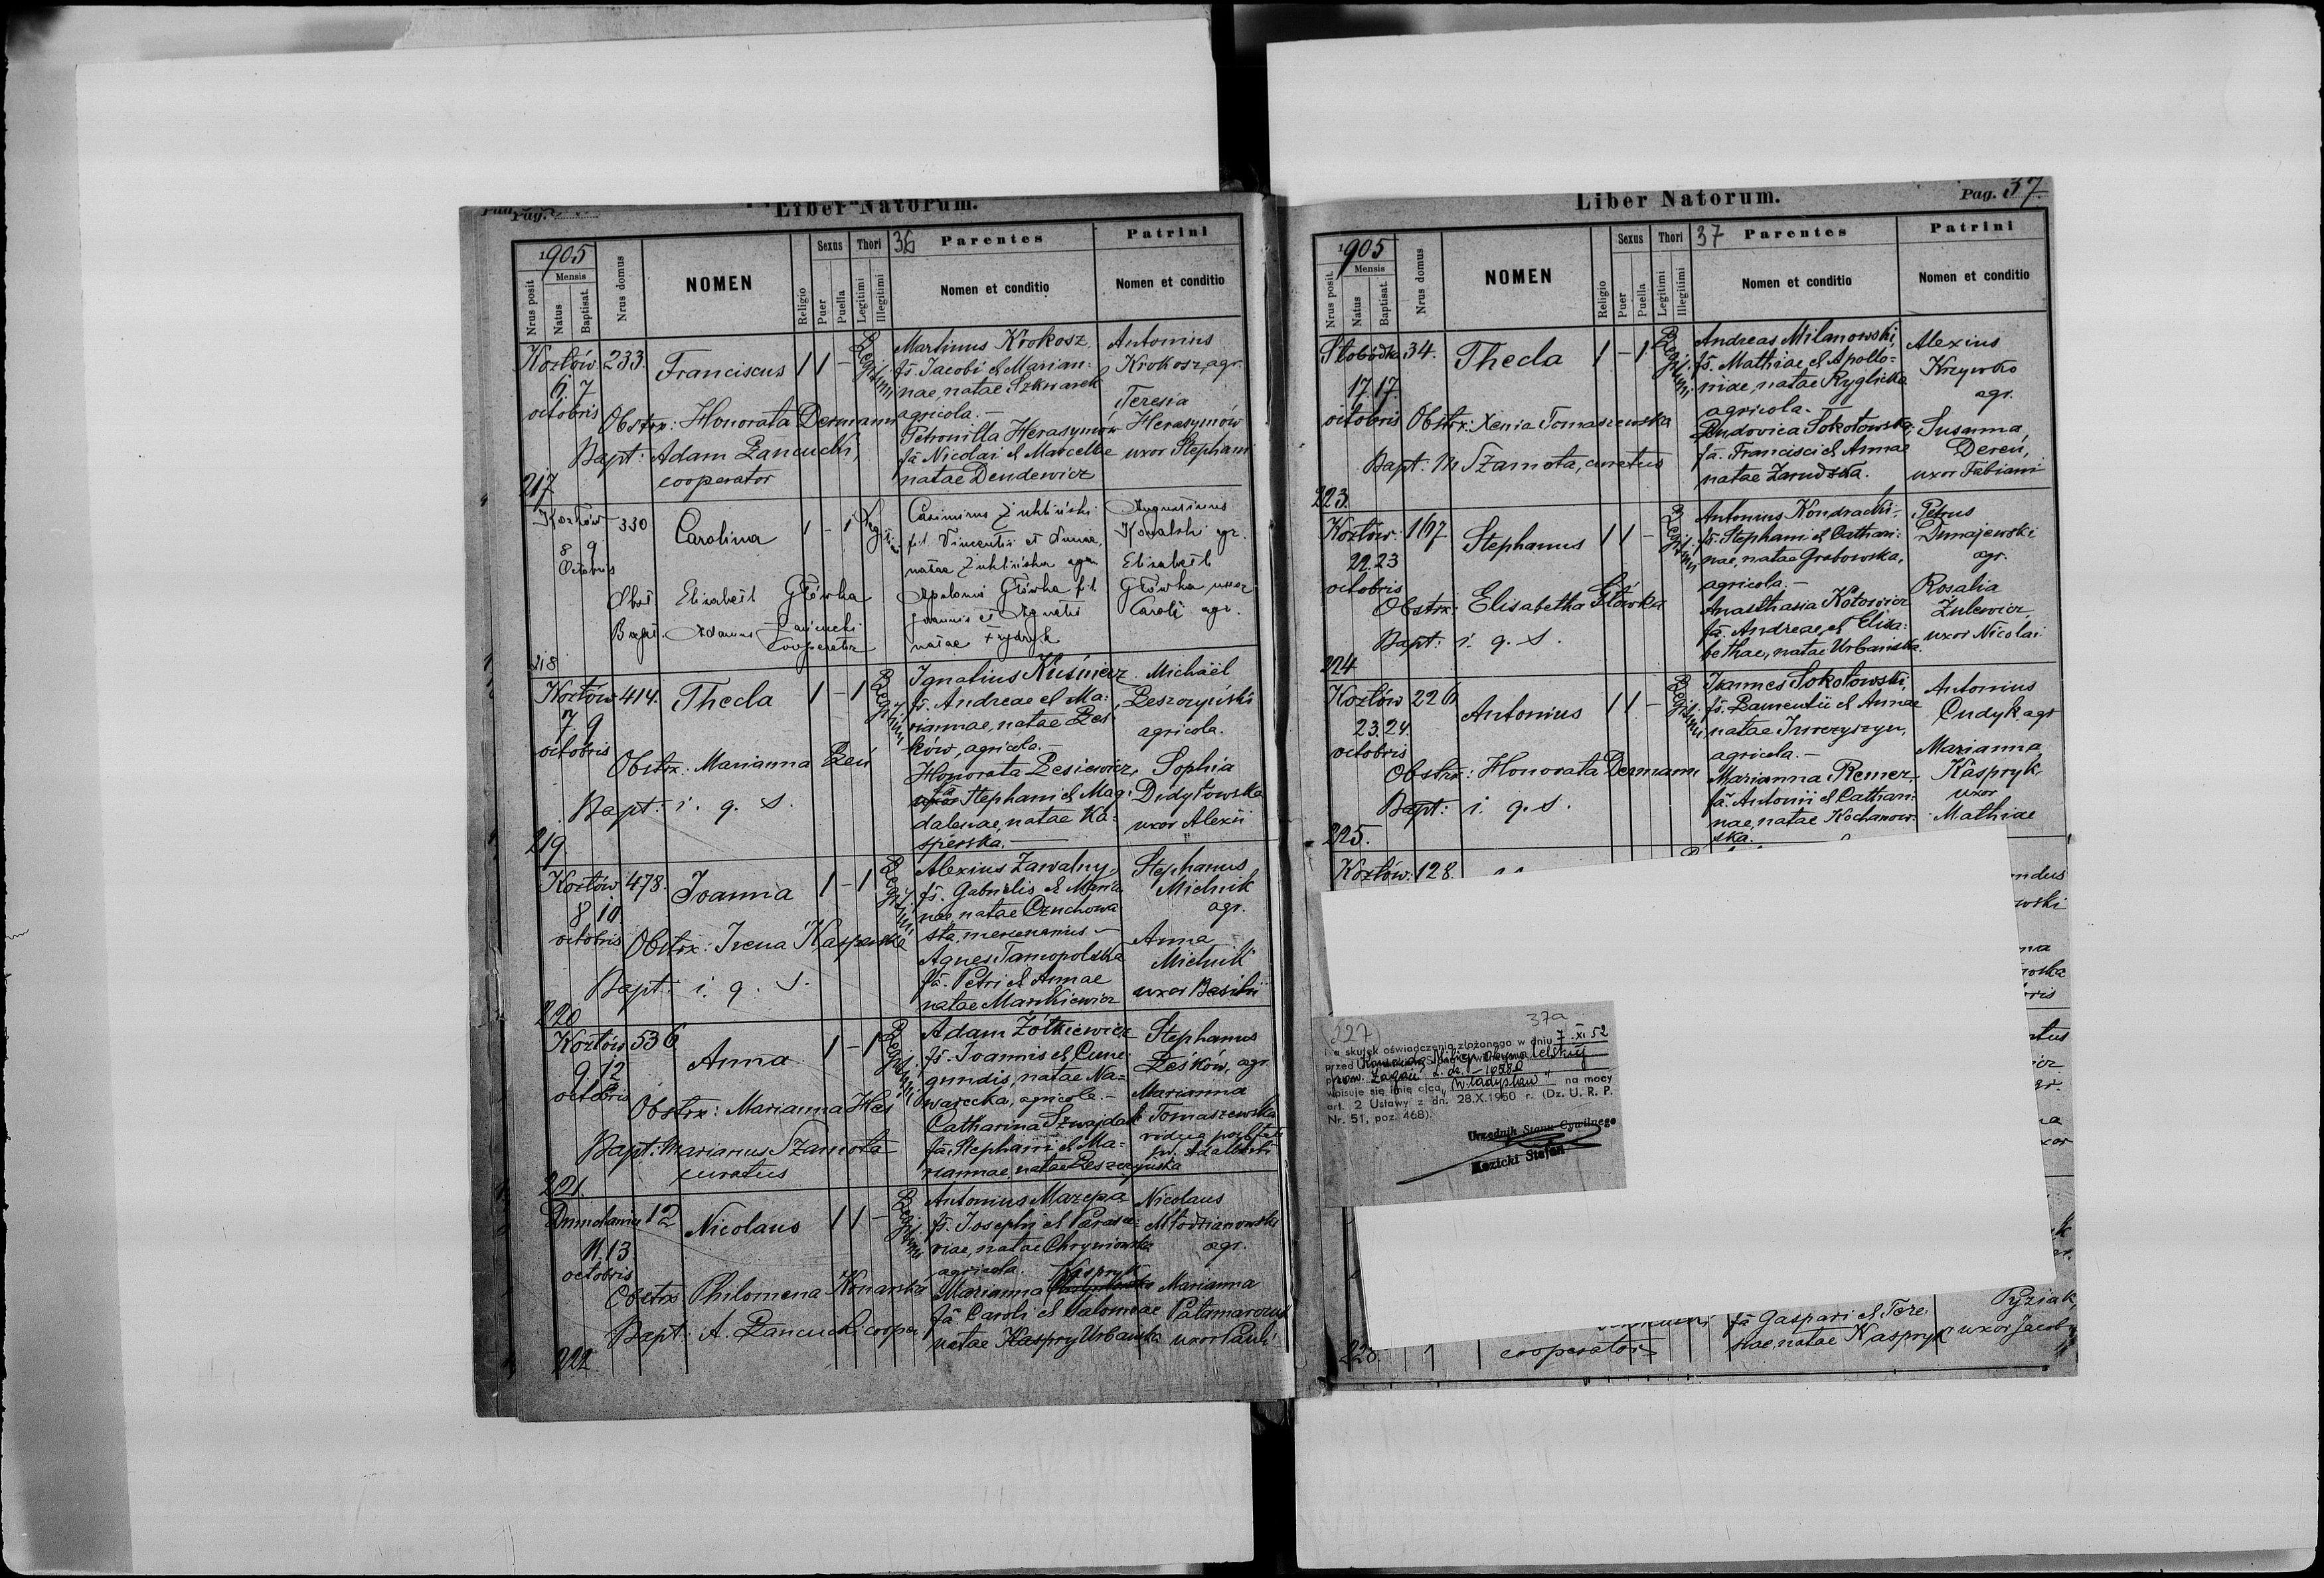 Pag.
Liber Natorum.
1905
Mensis
Nrus posit
Natus
Baptisat.
Nrus domus
NOMEN
Religio
Sexus
Puer
Puella
Thori
Legitimi
Illegitimi
36
Parentes
Nomen et conditio
Patrini
Nomen et conditio
Kozłów 233. Franciscus 1 1 - Legitimi
6. 7
octobris
Obstrx: Honorata Dermann
Bapt: Adam Łańcucki,
cooperator
217
Martinus Krokosz,
fs. Jacobi et Marian-
nae, natae Szkwarek
agricola.-
Petronilla Herasymów
fa Nicolai et Marcellae
natae Dendewicz
Antonius
Krokosz, agr.
Teresia
Herasymów
uxor Stephani
Kozłów 330 Carolina 1 - 1
8 9
Octobris
Obst. Elisabeth Główka
Bapt. Adamus Łańcucki
Cooperator
218
Casimirus Żukliński
fil. Vincentii et Annae,
natae Żuklińska agr.
Apolonia Główka fil.
Joannis et Agnetis
natae Frydryk
Augustinus
Kowalski agr.
Elisabeth
Główka uxor
Caroli agr.
Kozłów 414. Thecla 1 - 1 Legitimi
7. 9
octobris
Obstrx: Marianna Łeń
Bapt: i. q. s.
219.
Ignatius Kuśnierz
fs. Andreae et Ma-
riannae, natae Les
ków, agricola.-
Honorata Lesiewicz,
fa Stephani et Mag-
dalenae, natae Ka-
sperska.
Michaël
Leszczyński
agricola.
Sophia
Didyłowska
uxor Alexii
Kozłów 478. Joanna 1 - 1 Legitimi
8 10
octobris
Obstrx: Irena Kasperska
Bapt: i. q. s.
220
Alexius Zawalny,
fs. Gabrielis et Maria
nae, natae Czuchowa
sta, mercenarius -
Agnes Tarnopolska
fa. Petri et Annae
natae Markiewicz
Stephanus
Michnik
agr.
Anna
Michnik
uxor Basilii
Kozłów 536 Anna 1 - 1 Legitimi
9. 12
octobris
Obstrx: Marianna Hes
Bapt: Marianus Szamota
curatus
221.
Adam Żółkiewicz
fs. Joannis et Cune-
gundis, natae Na-
warecka, agricola.-
Catharina Szwajdak
fa. Stephani et Ma-
riannae, natae Leszczyńska
Stephanus
Leśków, agr
Marianna
Tomaszewska
12 Nicolaus 1 1 - Legitimi
11. 13.
octobris
Obstrx Philomena Konarska
Bapt: A. Łańcucki cooper
222
Antonius Mazepa
fs. Josephi et Parasce-
viae, natae Chryniowska
agricola.
Kaspryk
Marianna
fa Caroli et Salomeae
natae Kaspry Urbańska
Nicolaus
Młodzianowski
agr.
Marianna
Patamarczuk
uxor Pauli
Liber Natorum.
Pag. 37
1905
Mensis
Nrus posit
Natus
Baptisat.
Nrus domus
NOMEN
Religio
Sexus
Puer
Puella
Thori
Legitimi
Illegitimi
37
Parentes
Nomen et conditio
Patrini
Nomen et conditio
Słobódka 34. Thecla 1 - 1 Legitimi
17. 17.
octobris
Obstrx: Xenia Tomaszewska
Bapt: M Szamota, curatus
223.
Andreas Milanowski,
fs. Mathiae et Apollo-
niae, natae Ryglicka
agricola.-
Ludovica Sokołowska
fa. Francisci et Annae
natae Zarudzka.
Alexius
Krzywko
agr.
Susanna
Dereń,
uxor Fabiani
Kozłów. 167 Stephanus 1 1 - Legitimi
22. 23
octobris
Obstrx: Elisabetha Główka
Bapt: i. q. s.
224
Antonius Kondracki,
fs. Stephani et Cathari-
nae, natae Grabowska,
agricola.-
Anasthasia Kotowicz
fa. Andreae et Elisa-
bethae, natae Urbańska.
Petrus
Dunajewski
agr.
Rosalia
Żulewicz
uxor Nicolai
Kozłów 226 Antonius 1 1 - Legitimi
23. 24.
octobris
Obstrx: Honorata Dermann
Bapt: i. q. s.
225.
Joannes Sokołowski,
fs. Laurentii et Annae
natae Iwrczyszyn,
agricola.-
Marianna Remez,
fa. Antonii et Cathari-
nae, natae Kochanow-
ska.
Antonius
Cudyk agr
Marianna
Kaspryk
uxor
Mathiae
Kozłów. 128.
227
37a
i a skutek oświadczenia złożonego w dniu 7.XI 52
przed Komendą Milicji Obywatelskiej
pow. Żagań L. dz. - 16580
wpisuje się imię ojca "Władysław" na mocy
art. 2 Ustawy z dn. 28.X.1950 r. (Dz. U. R. P.
Nr. 51, poz. 468).
Urzędnik Stanu Cywilnego
Kozicki Stefan
cooperator
fa Gaspari et Tere-
siae, natae Kaspryk
Pyziak,
uxor Jacobi